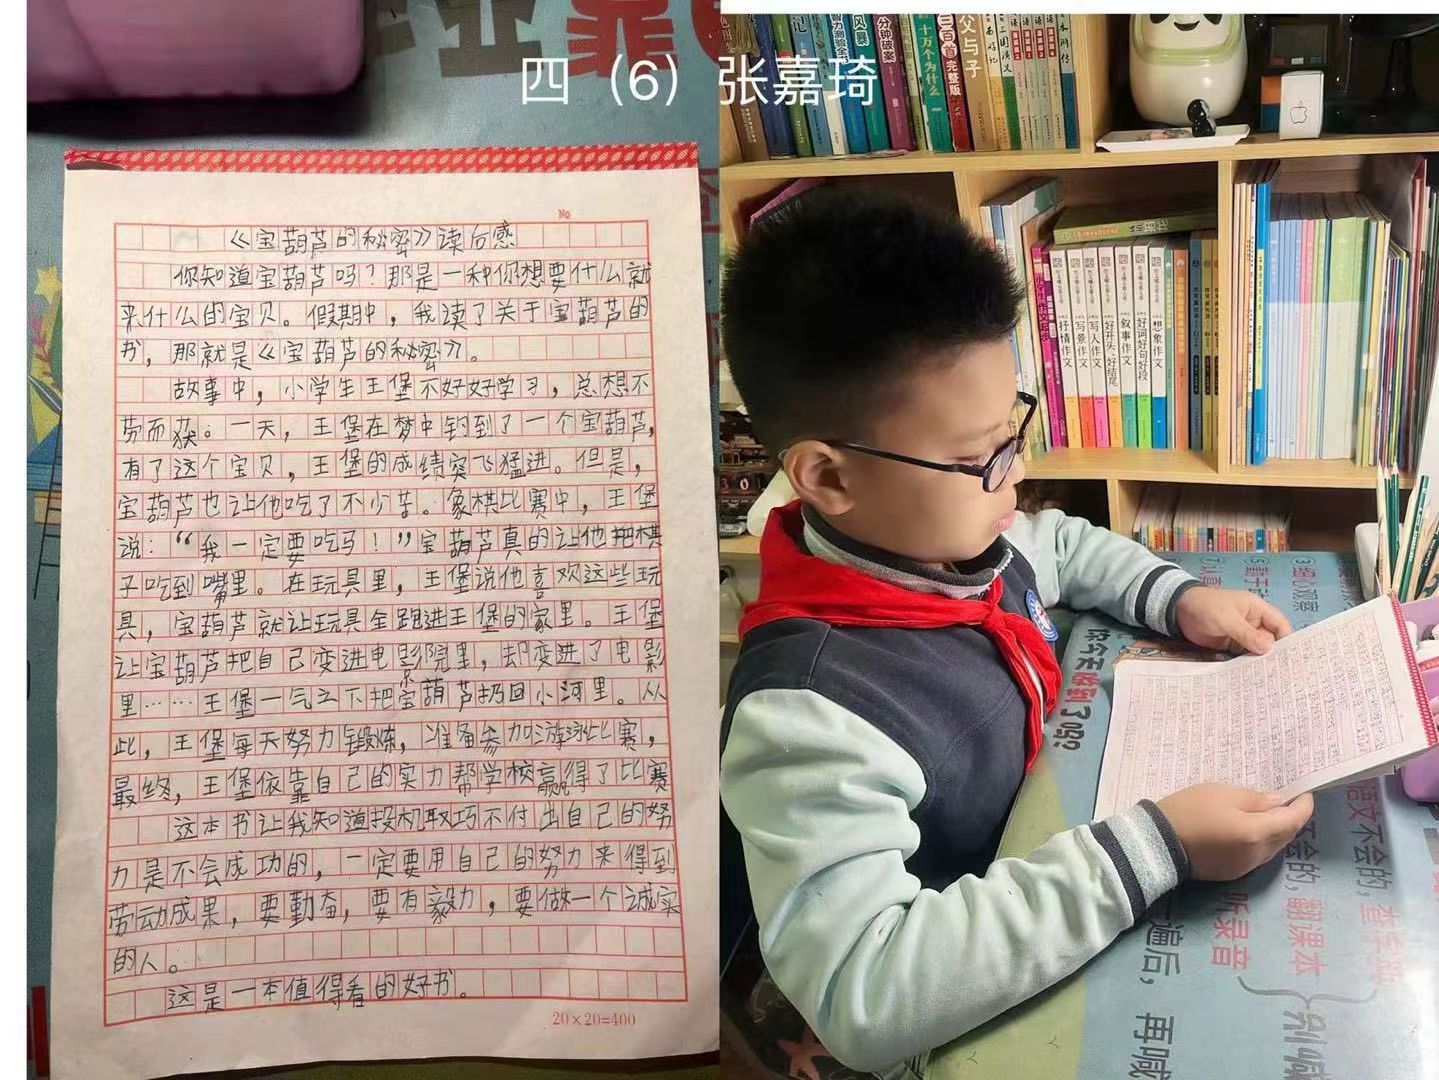 四（6）张嘉琦
№
《宝葫芦的秘密》读后感
你知道宝葫芦吗？那是一种你想要什么就
来什么的宝贝。假期中，我读了关于宝葫芦的
书，那就是《宝葫芦的秘密》。
故事中，小学生王堡不好好学习，总想不
劳而获。一天，王堡在梦中钓到了一个宝葫芦，
有了这个宝贝，王堡的成绩突飞猛进。但是，
宝葫芦也让他吃了不少苦。象棋比赛中，王堡
说：“我一定要吃马！”宝葫芦真的让他把棋
子吃到嘴里。在玩具里，王堡说他喜欢这些玩
具，宝葫芦就让玩具全跑进王堡的家里。王堡
让宝葫芦把自己变进电影院里，却变进了电影
里……王堡一气之下把宝葫芦扔回小河里。从
此，王堡每天努力锻炼，准备参加游泳比赛，
最终，王堡依靠自己的实力帮学校赢得了比赛
这本书让我知道投机取巧不付出自己的努
力是不会成功的，一定要用自己的努力来得到
劳动成果，要勤奋，要有毅力，要做一个诚实
的人。
这是一本值得看的好书。
20×20=400
智力测验全书
风暴
分钟故案
十万个为什么
三百首 完整版
父与子
三国演义
水浒传
抒情作文
写景作文
写人作文
好开头、好结尾
叙事作文
好词好句好段
想象作文
③细心观察
你今天做到了吗？
语文不会的，查字典
不会的，翻课本
听录音
一遍后，再喊
别喊